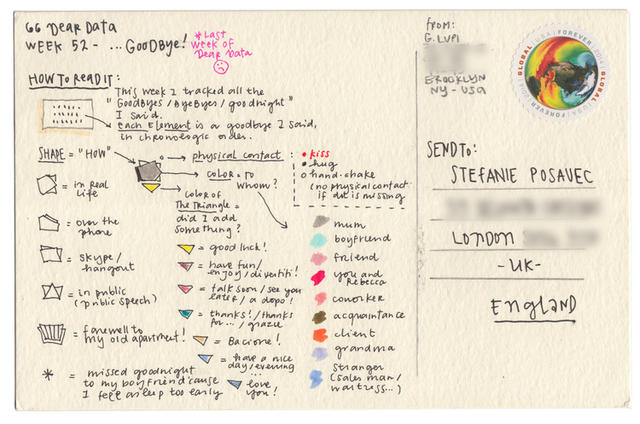 66 DEAR DATA
WEEK 52 - ... GOODBYE!
* LAST
WEEK OF
DEAR DATA
HOW TO READ IT:
This week I tracked all the
"GOODBYES / BYEBYES / goodnight"
I said.
Each Element is a goodbye I said,
in chronologic order.
SHAPE = "HOW"
= in real
life
= over the
phone
= skype/
hangout
= in public
(public speech)
= farewell to
my old apartment!
* = missed goodnight
to my boyfriend cause
I fell asleep too early
physical contact :
• kiss
• hug
o hand-shake
(no physical contact
if dot is missing)
COLOR = TO
WHOM?
COLOR OF
The TRIANGLE =
did I add
something?
= good luck!
= have fun/
enjoy / divertiti!
= talk soon / see you
later / a dopo!
= thanks! / thanks
for... / grazie
= Bacione!
= have a nice
day / evening
...
= love
you!
mum
boyfriend
friend
you and
Rebecca
coworker
acquaintance
client
grandma
stranger
(sales man /
waitress...)
FROM:
G. LUPI
BROOKLYN
NY - USA
GLOBAL USA FOREVER 2014
SEND TO:
STEFANIE POSAVEC
LONDON
- UK -
ENGLAND